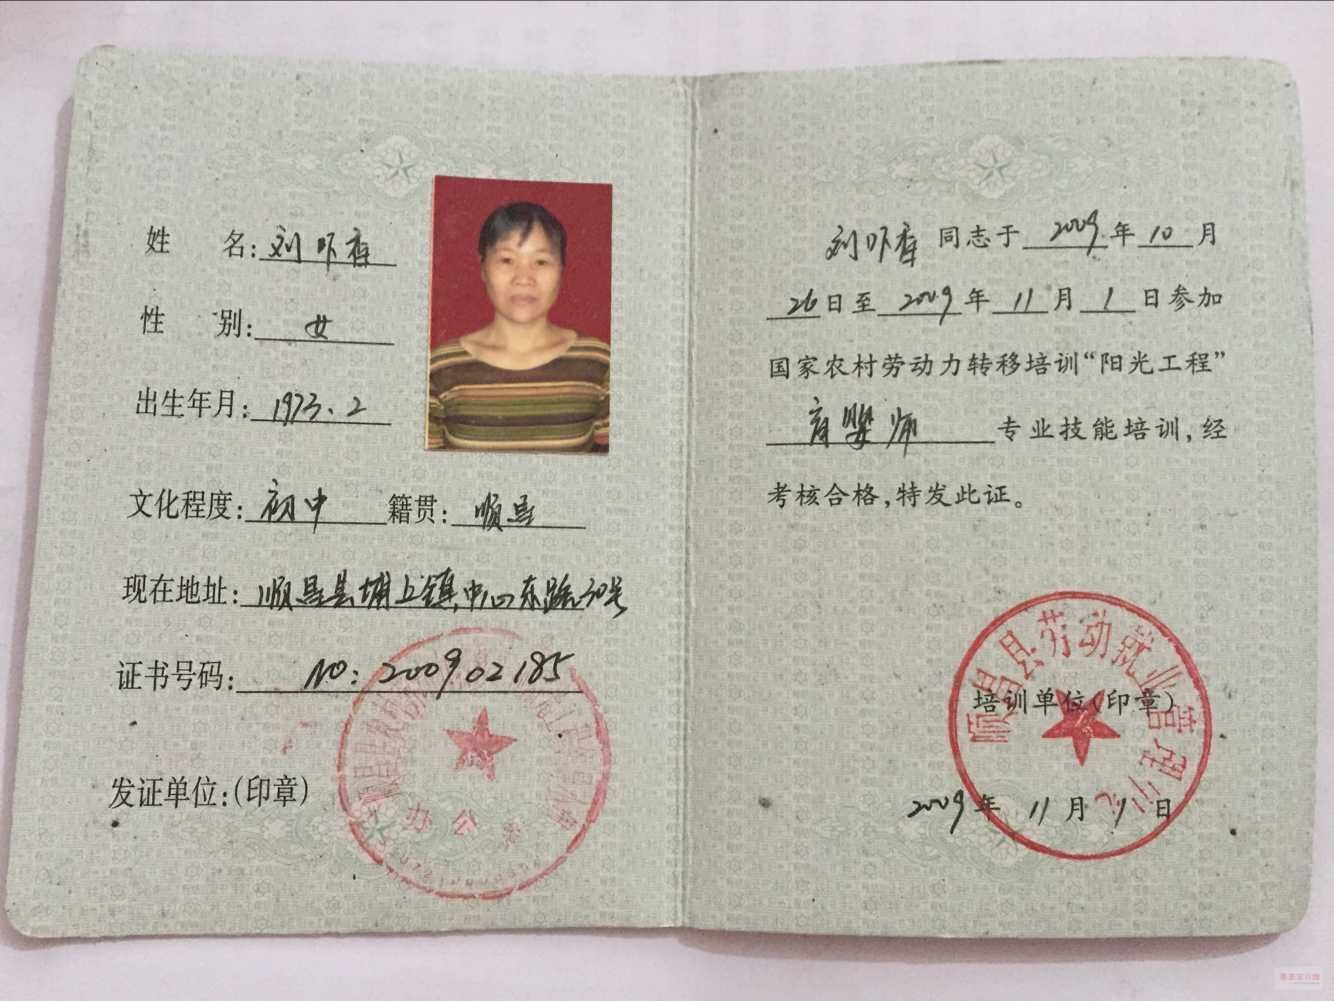 姓 名:刘吓
性 别:女
出生年月:1973.2
文化程度:初中 籍贯:顺昌
现在地址:顺昌县埔上镇中心东路30号
证书号码:NO:200902185
发证单位:(印章)
办公
刘吓 同志于2009年10月
26日至2009年11月1日参加
国家农村劳动力转移培训“阳光工程”
育婴师专业技能培训,经
考核合格,特发此证。
顺昌县劳动就业管理
培训单位(印章)
2009年11月1日